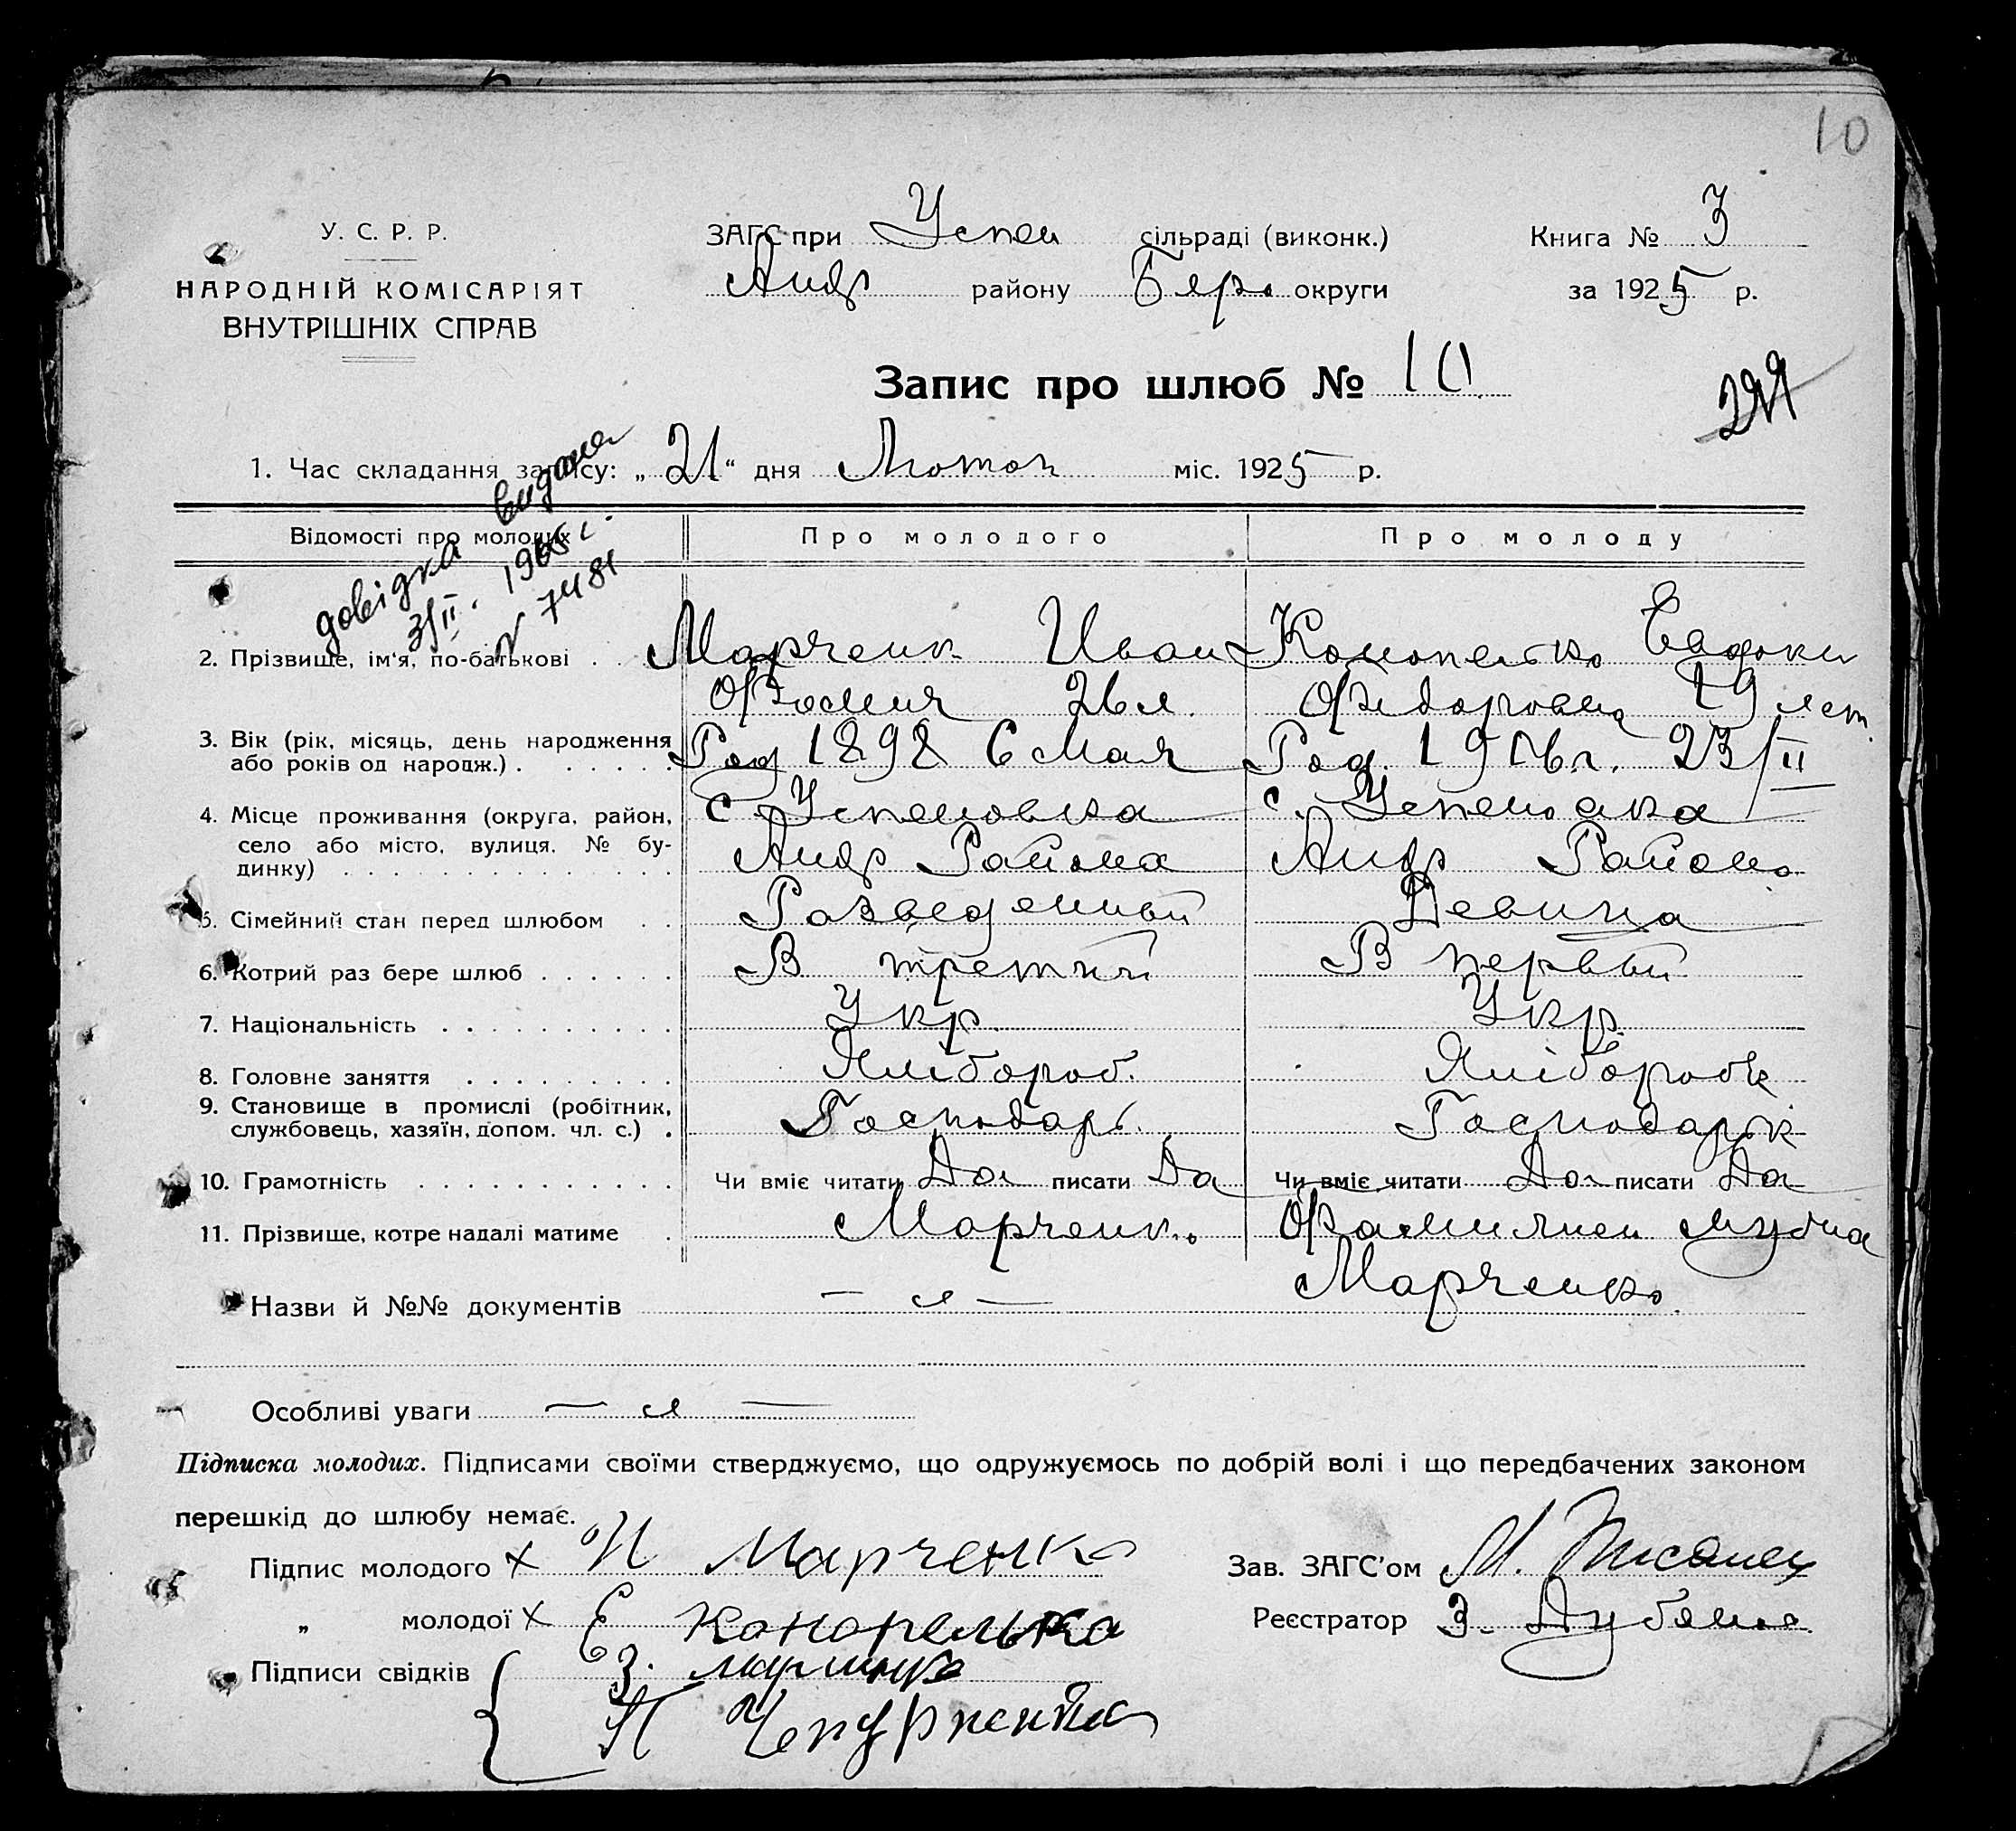 10
У. С. Р. Р.
НАРОДНІЙ КОМІСАРІЯТ
ВНУТРІШНІХ СПРАВ
ЗАГС при Успен сільраді (виконк.)
Андр району Берд округи
Книга № 3
за 1925 р.
Запис про шлюб № 10
1. Час складання запису: „21“ дня Лютого міс. 1925 р.
довідка видана
3/II. 1965 г.
N 7481
Відомості про молодих
Про молодого
Про молоду
2. Прізвище, ім'я, по-батькові . . Марченк Иван Конопелько Евдоки
Фомич 26 л. Федоровна 19 лет
3. Вік (рік, місяць, день народження або років од народж.) . . . . . Род 1898 6 Мая Род. 1906 г. 23/II
4. Місце проживання (округа, район, село або місто, вулиця, № будинку) . . . . . с. Успеновка с. Успеновка
Андр Района Андр Района
5. Сімейний стан перед шлюбом . . Разведенный Девица
6. Котрий раз бере шлюб . . . . . . В третий В первый
7. Національність . . . . . . . . . . Укр. Укр.
8. Головне заняття . . . . . . . . . Хлібороб. Хлібороб
9. Становище в промислі (робітник, службовець, хазяїн, допом. чл. с.) . Господарь. Господарьк
10. Грамотність . . . . . . . . . . . Чи вміє читати Да писати Да Чи вміє читати Да писати Да
11. Прізвище, котре надалі матиме . Марченко Фамилией мужа
Марченко.
Назви й №№ документів
Особливі уваги
Підписка молодих. Підписами своїми стверджуємо, що одружуємось по добрій волі і що передбачених законом
перешкід до шлюбу немає.
Підпис молодого х И Марченко
„ молодої х Е Конопелька
Підписи свідків { З.
П
Зав. ЗАГС'ом М. Писанец
Реєстратор З.